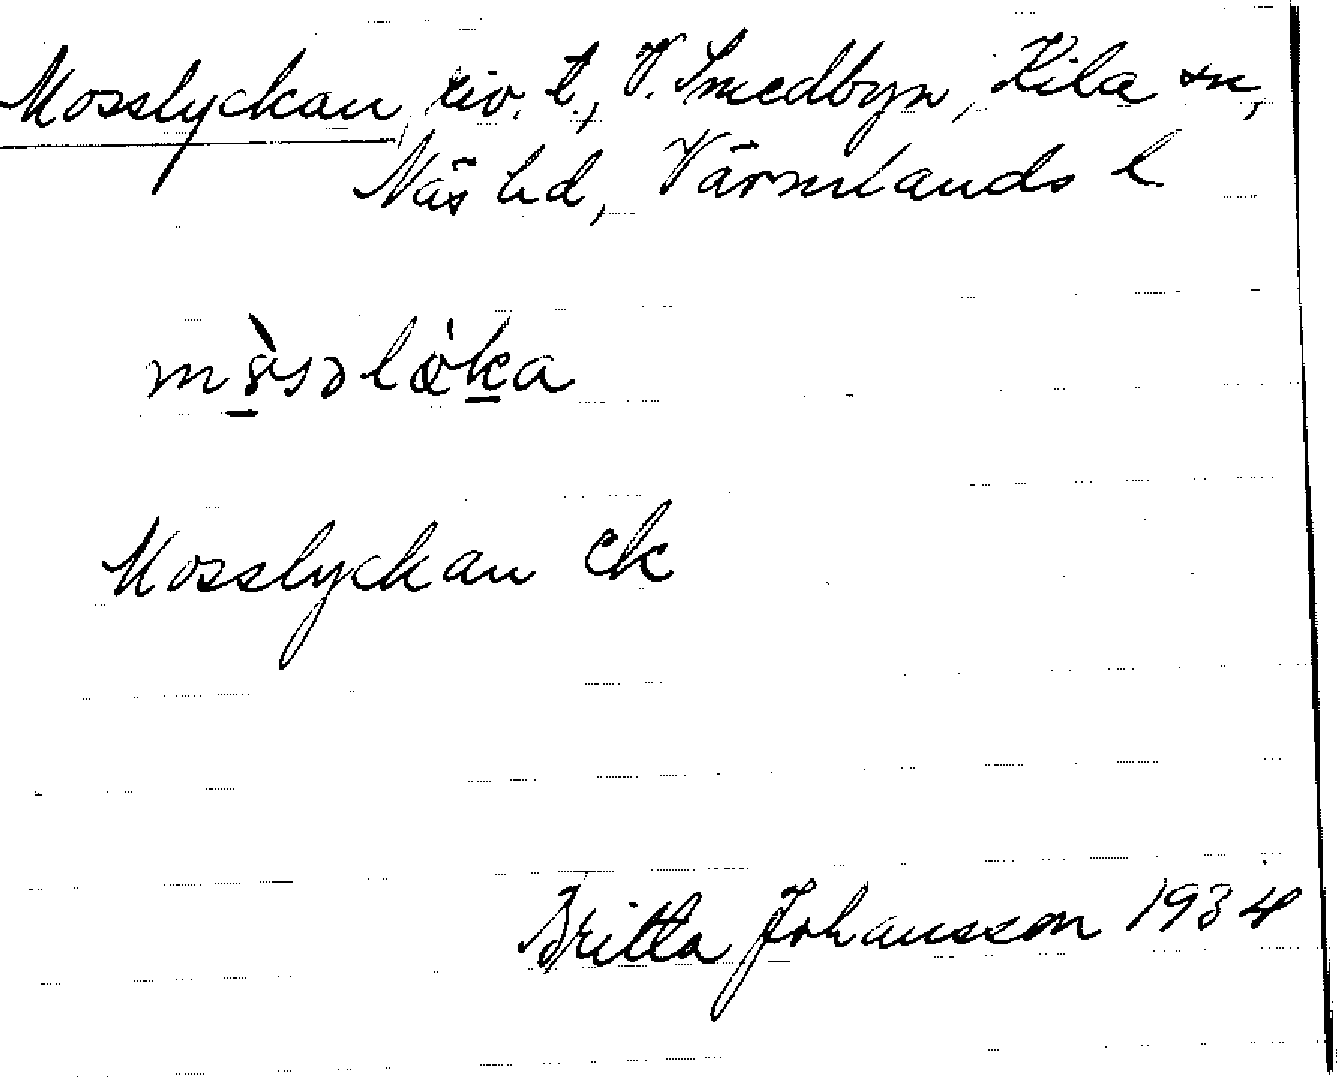 Mosslyckan, riv. t., V. Smedbyn, Kila sn,
Näs hd, Värmlands l.
Mosslyckan ek
Britta Johansson 1934